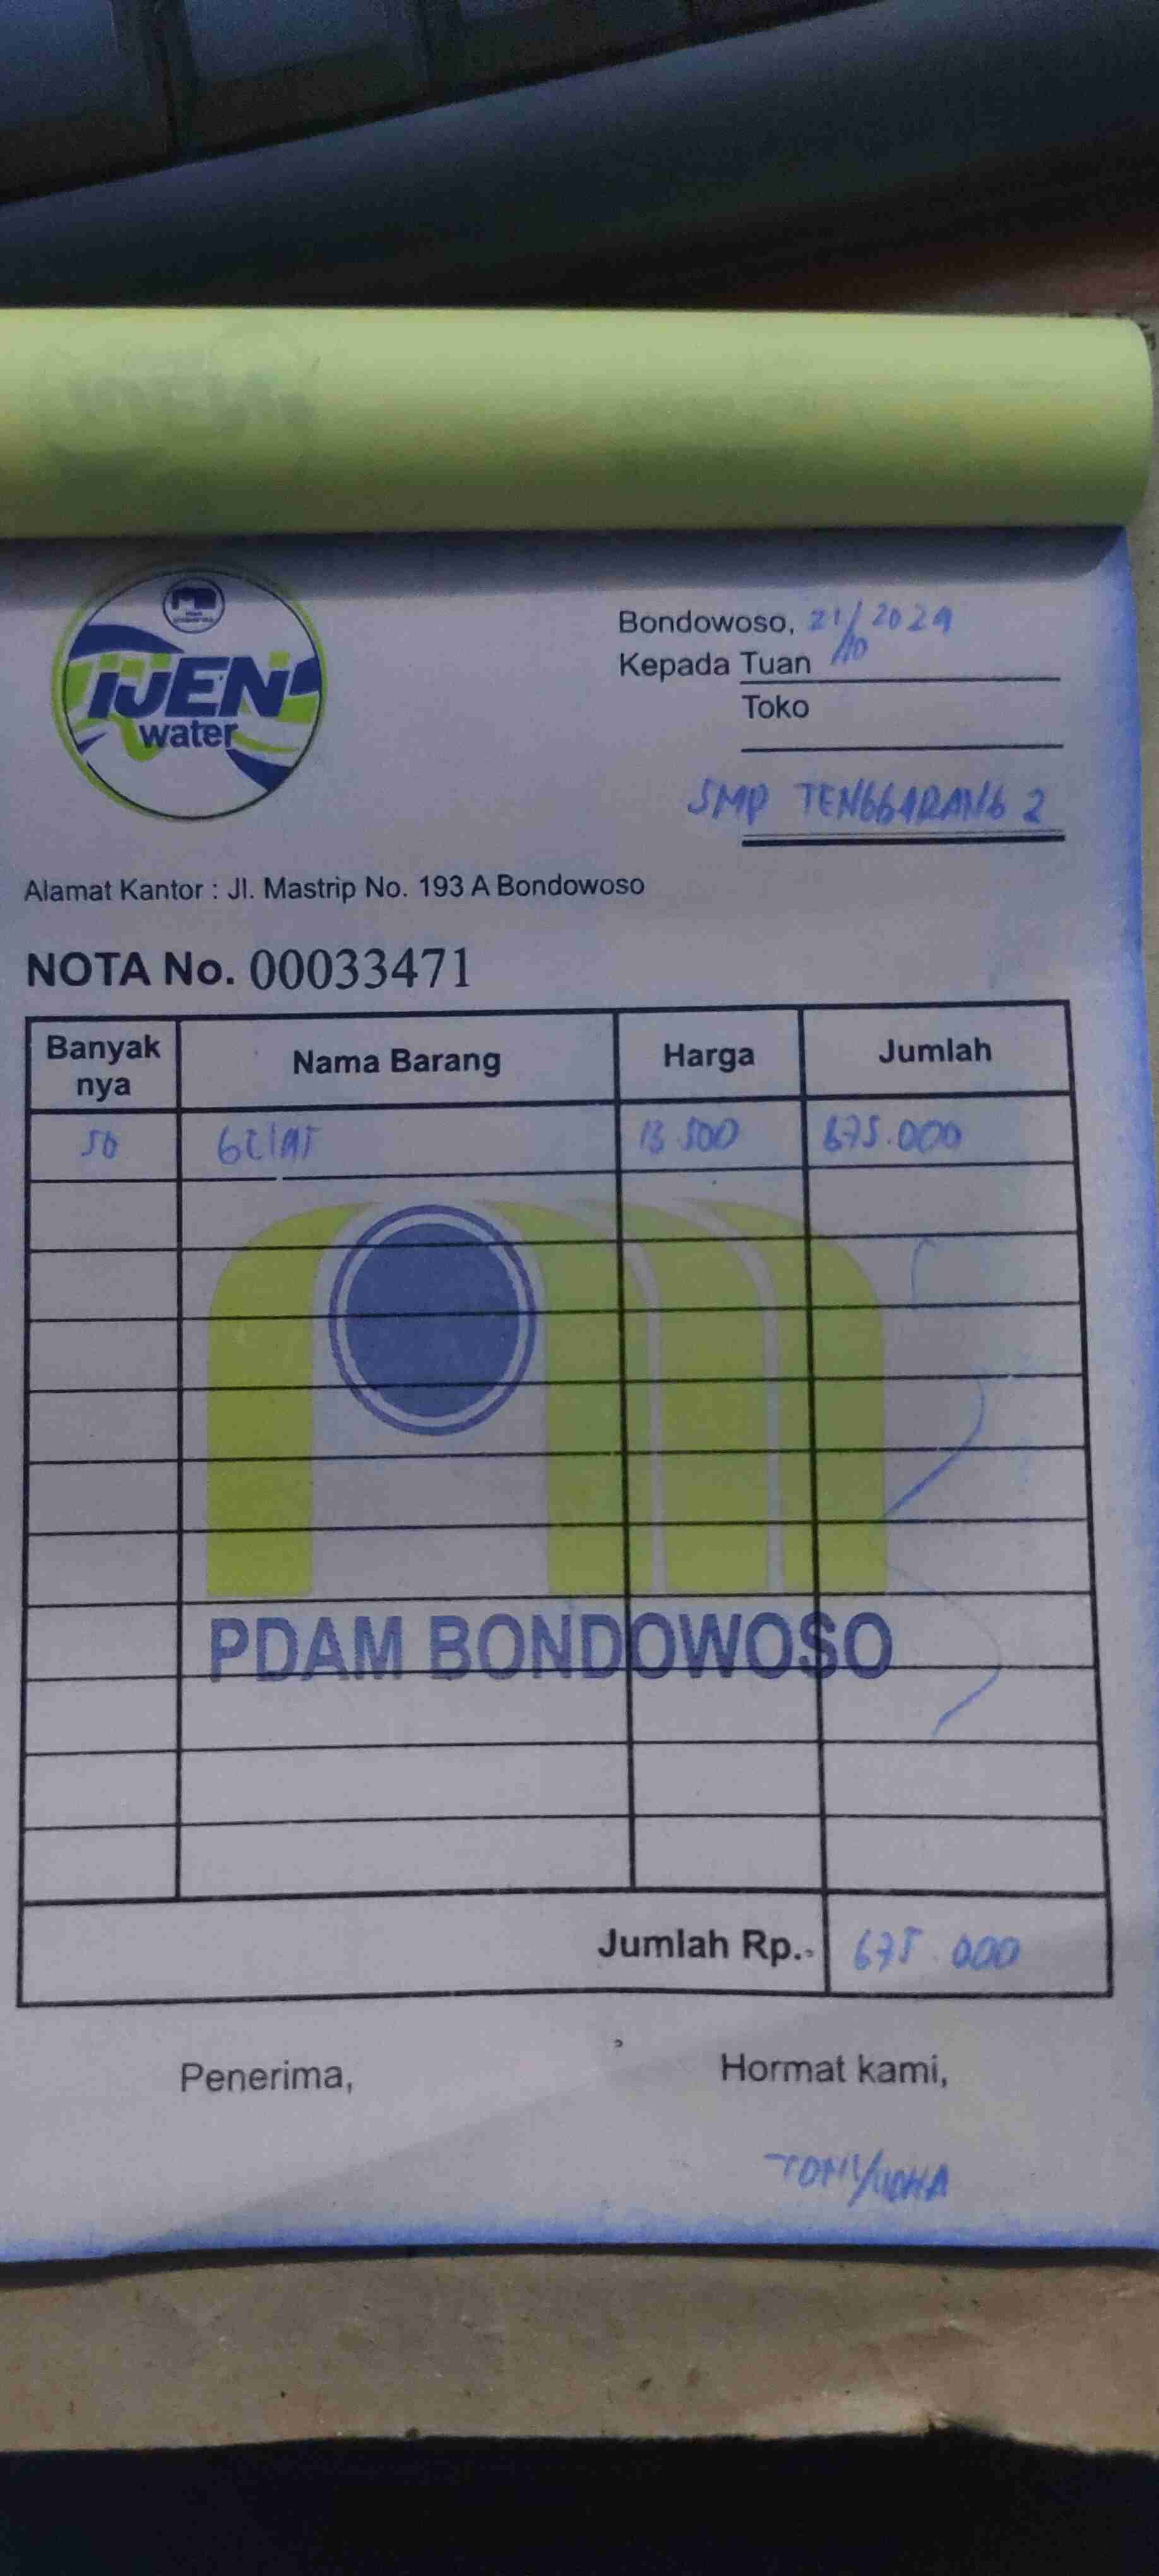 IJEN
water
Bondowoso, 21/10 2024
Kepada Tuan
Toko
SMP TENGGARANG 2
Alamat Kantor : Jl. Mastrip No. 193 A Bondowoso
NOTA No. 00033471
Banyak nya Nama Barang Harga Jumlah
50 GELAS 13 500 675.000
PDAM BONDOWOSO
Jumlah Rp. 675.000
Penerima, Hormat kami,
TONY/UDHA